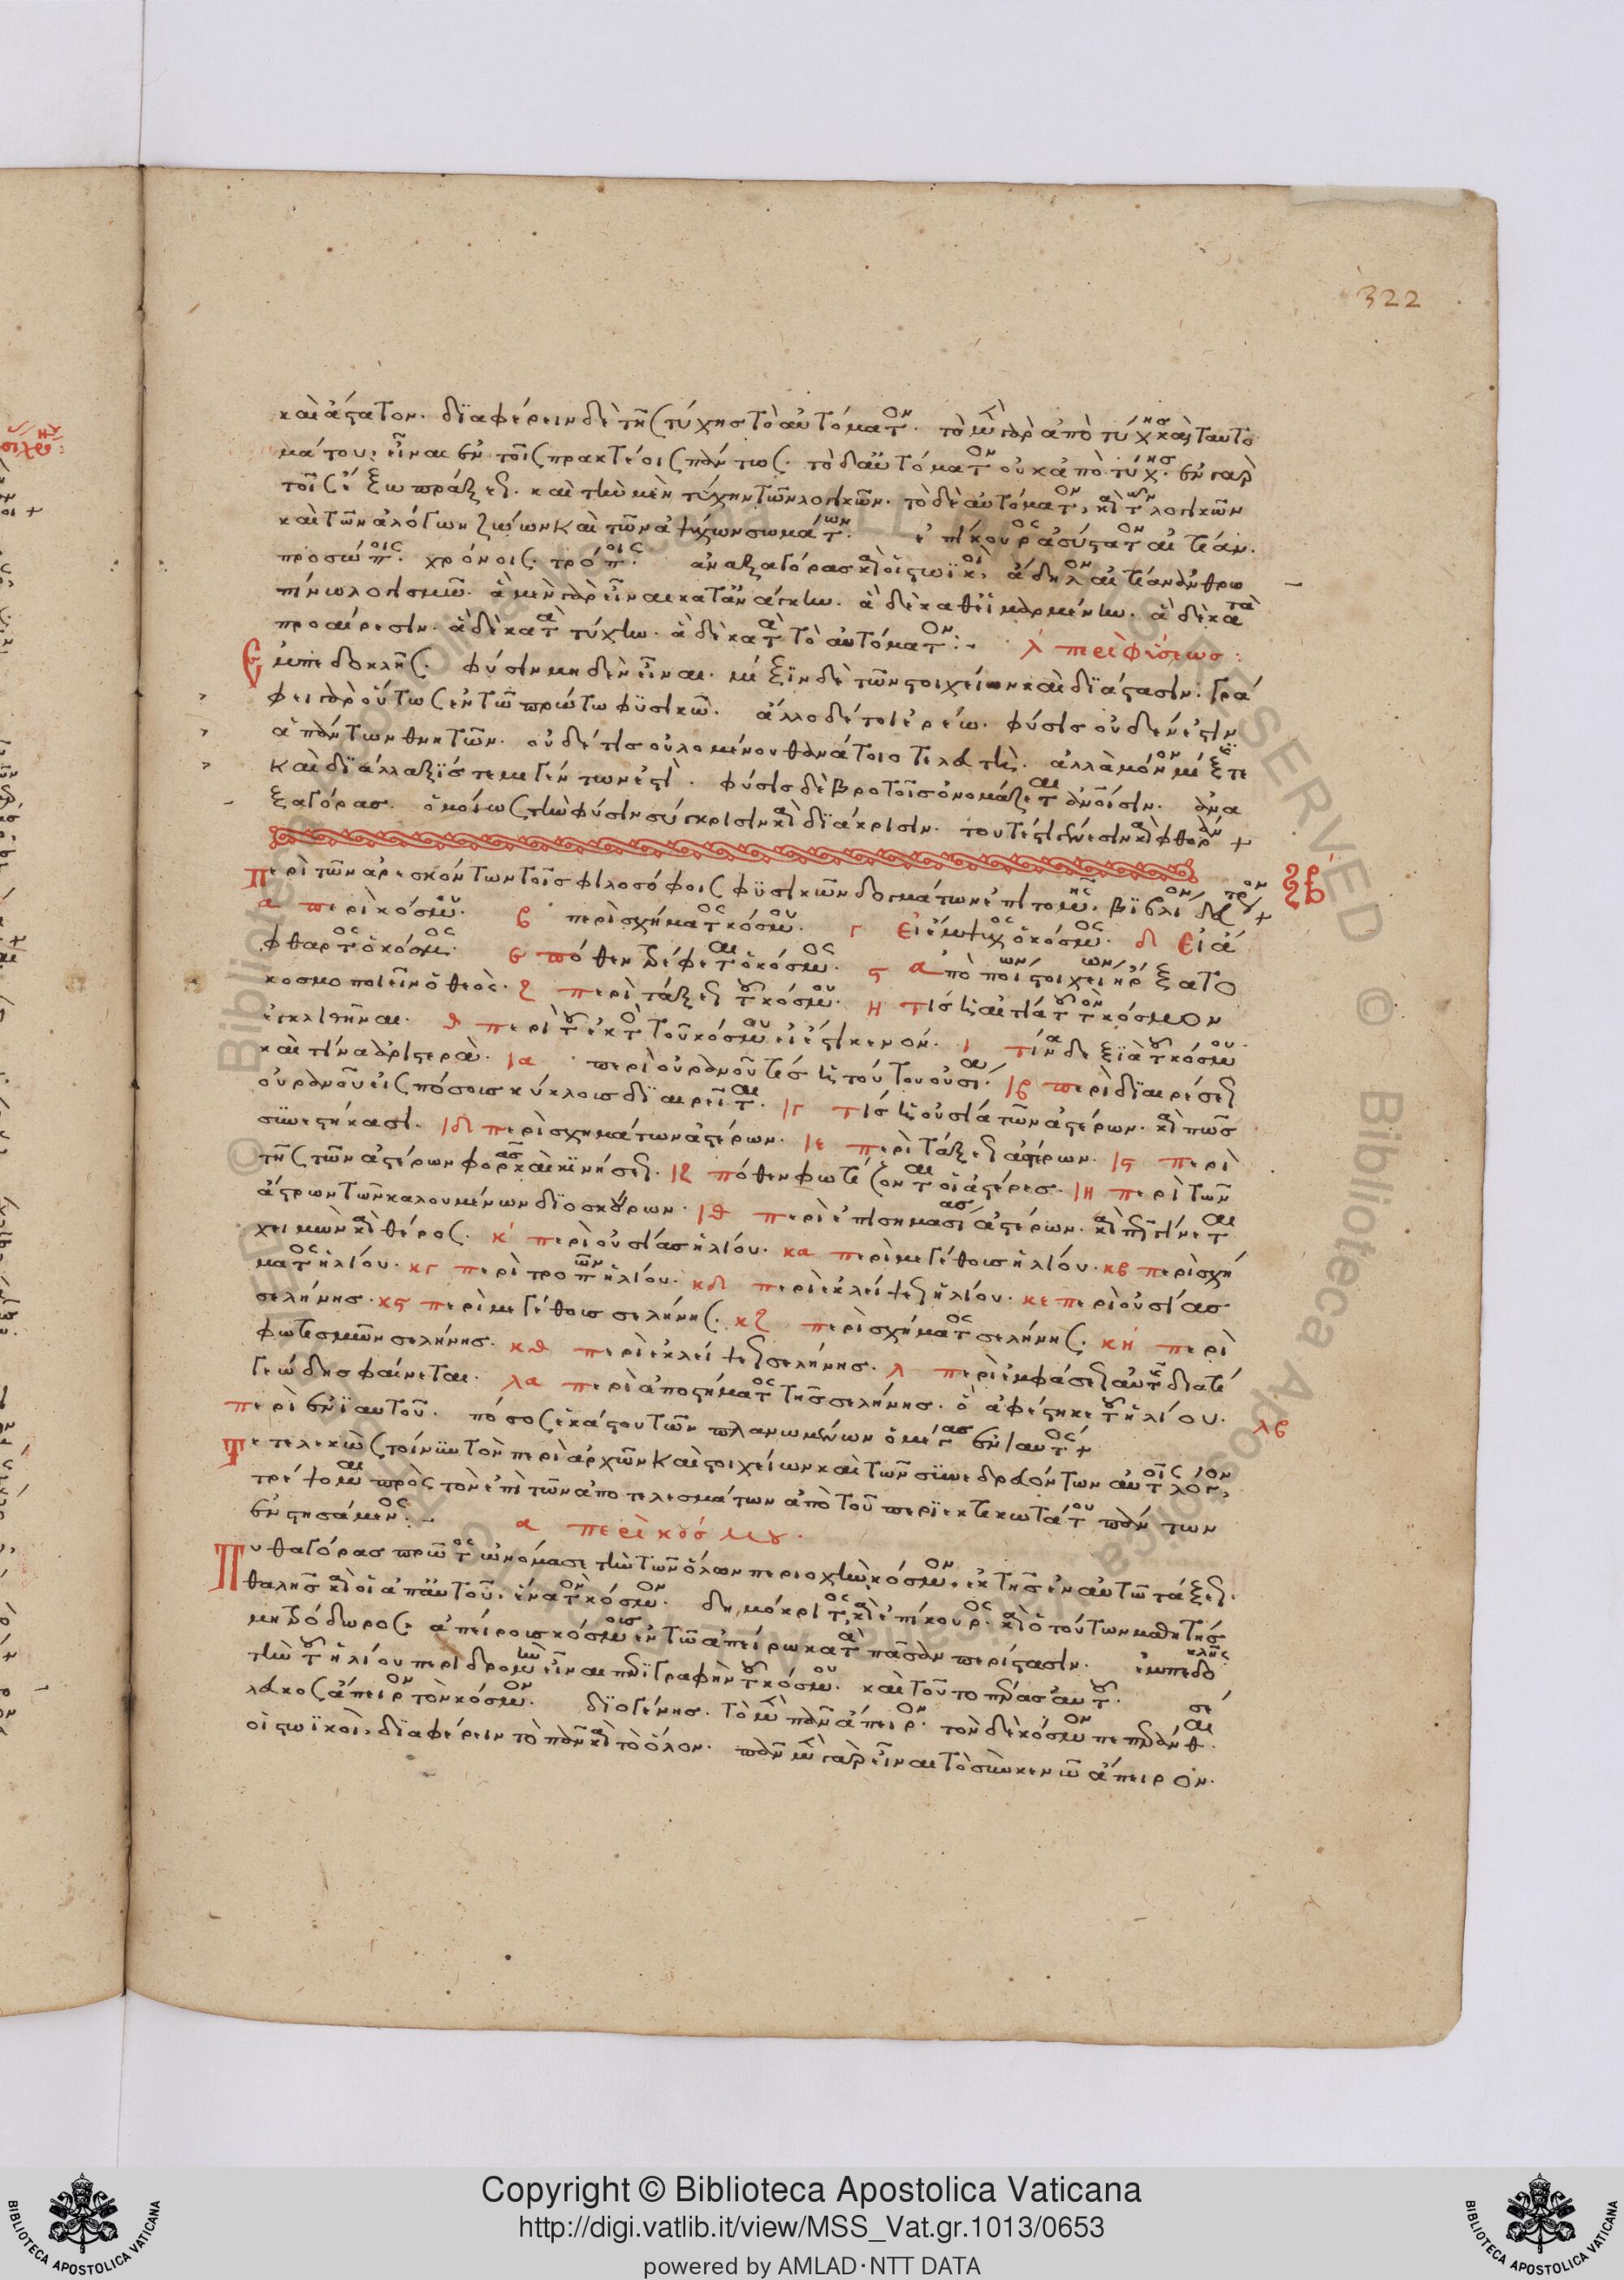 322
καὶ ἄστατον. διαφέρειν δὲ τῆς τύχης τὸ αὐτόματον. τὸ μὲν γὰρ ἀπὸ τύχης καὶ ταυτο
μάτου, εἶναι ἐν τοῖς πρακτέοις πάντως. τὸ δ' αὐτόματον οὐκ ἀπὸ τύχης. ἐν γὰρ
τοῖς ἔξω πράξεως. καὶ τὴν μὲν τύχην τῶν λογικῶν. τὸ δὲ αὐτόματον, καὶ τῶν λογικῶν
καὶ τῶν ἀλόγων ζώων καὶ τῶν ἀψύχων σωμάτων. ἐπίκουρος ἀσύστατον αἰτίαν.
προσώποις. χρόνοις. τρόποις. ἀναξαγόρας καὶ οἱ στωϊκοὶ, ἄδηλον αἰτίαν ἀνθρω
πίνω λογισμῶ. ἃ μὲν γὰρ εἶναι κατ' ἀνάγκην. ἃ δὲ καθ' εἱμαρμένην. ἃ δὲ κατὰ
προαίρεσιν. ἃ δὲ κατὰ τύχην. ἃ δὲ κατὰ τὸ αὐτόματον:- λ περὶ φύσεως:
Εμπεδοκλῆς. φύσιν μηδὲν εἶναι. μίξιν δὲ τῶν στοιχείων καὶ διάστασιν. γρά
φει γὰρ οὕτως ἐν τῶ πρώτω φυσικῶ. ἄλλο δέ τοι ἐρέω. φύσις οὐδενός ἐστιν
ἁπάντων θνητῶν. οὐδέ τις οὐλομένου θανάτοιο τελευτή. ἀλλὰ μόνον μίξίς τε
καὶ διάλλαξίς τε μιγέντων ἐστὶ. φύσις δὲ βροτοῖς ὀνομάζεται ἀνοῖσιν. ἀνα
ξαγόρας. ὁμοίως τὴν φύσιν σύγκρισιν καὶ διάκρισιν. τουτέστι γένεσιν καὶ φθοράν +
Περὶ τῶν ἀρεσκόντων τοῖς φιλοσόφοις φυσικῶν δογμάτων ἐπιτομῆς. βιβλίον δεύτερον +
ξβ
α περὶ κόσμου. β περὶ σχήματος κόσμου. γ Εἰ ἔμψυχος ὁ κόσμος. δ Εἰ ἄ
φθαρτος ὁ κόσμος. ε πόθεν τρέφεται ὁ κόσμος. ς ἀπὸ ποίων στοιχείων ἤρξατο
κοσμοποιεῖν ὁ θεός. ζ περὶ τάξεως τοῦ κόσμου. η τίς ἡ αἰτία τοῦ τὸν κόσμον
ἐγκλιθῆναι. θ περὶ τοῦ ἐκτὸς τοῦ κόσμου εἰ ἔστι κενόν. ι τίνα δεξιὰ τοῦ κόσμου
καὶ τίνα ἀριστερά. ια περὶ οὐρανοῦ τίς ἡ τούτου οὐσία. ιβ περὶ διαιρέσεως
οὐρανοῦ εἰς πόσους κύκλους διαιρεῖται. ιγ τίς ἡ οὐσία τῶν ἀστέρων. καὶ πῶς
συνεστήκασι. ιδ περὶ σχημάτων ἀστέρων. ιε περὶ τάξεως ἀστέρων. ις περὶ
τῆς τῶν ἀστέρων φορᾶς καὶ κινήσεως. ιζ πόθεν φωτίζονται οἱ ἀστέρες. ιη περὶ τῶν
ἄστρων τῶν καλουμένων διοσκούρων. ιθ περὶ ἐπισημασίας ἀστέρων. καὶ πῶς γίνεται
χειμὼν καὶ θέρος. κ περὶ οὐσίας ἡλίου. κα περὶ μεγέθους ἡλίου. κβ περὶ σχή
ματος ἡλίου. κγ περὶ τροπῶν ἡλίου. κδ περὶ ἐκλείψεως ἡλίου. κε περὶ οὐσίας
σελήνης. κς περὶ μεγέθους σελήνης. κζ περὶ σχήματος σελήνης. κη περὶ
φωτισμῶν σελήνης. κθ περὶ ἐκλείψεως σελήνης. λ περὶ ἐμφάσεως αὐτῆς διατί
γεώδης φαίνεται. λα περὶ ἀποστήματος τῆς σελήνης. ὃ ἀφέστηκε τοῦ ἡλίου.
λβ
περὶ ἐνιαυτοῦ. πόσος ἑκάστου τῶν πλανωμένων ὁ μέγας ἐνιαυτός +
Τετελεκὼς τοίνυν τὸν περὶ ἀρχῶν καὶ στοιχείων καὶ τῶν συνεδρευόντων αὐτοῖς λόγον,
τρέψομαι πρὸς τὸν ἐπὶ τῶν ἀποτελεσμάτων ἀπὸ τοῦ περιεκτικωτάτου πάντων
ἐνστησάμενος:-
α περὶ κόσμου.
Πυθαγόρας πρῶτος ὠνόμασε τὴν τῶν ὅλων περιοχὴν κόσμον, ἐκ τῆς ἐν αὐτῶ τάξεως.
θαλῆς καὶ οἱ ἀπ' αὐτοῦ, ἕνα τὸν κόσμον. δημόκριτος καὶ ἐπίκουρος. καὶ ὁ τούτων μαθητής
μητρόδωρος, ἀπείρους κόσμους ἐν τῶ ἀπείρω κατὰ πᾶσαν περίστασιν. ἐμπεδοκλῆς
τὴν τοῦ ἡλίου περιδρομὴν εἶναι περιγραφὴν τοῦ κόσμου. καὶ τοῦτο πέρας αὐτοῦ. σέ
λευκος ἄπειρον τὸν κόσμον. διογένης. τὸ μὲν πᾶν ἄπειρον. τὸν δὲ κόσμον πεπεράνθαι.
οἱ στωϊκοὶ, διαφέρειν τὸ πᾶν καὶ τὸ ὅλον. πᾶν μὲν γὰρ εἶναι τὸ σὺν κενῶ ἄπειρον.
Copyright © Biblioteca Apostolica Vaticana
http://digi.vatlib.it/view/MSS_Vat.gr.1013/0653
powered by AMLAD·NTT DATA
BIBLIOTECA APOSTOLICA VATICANA
BIBLIOTECA APOSTOLICA VATICANA